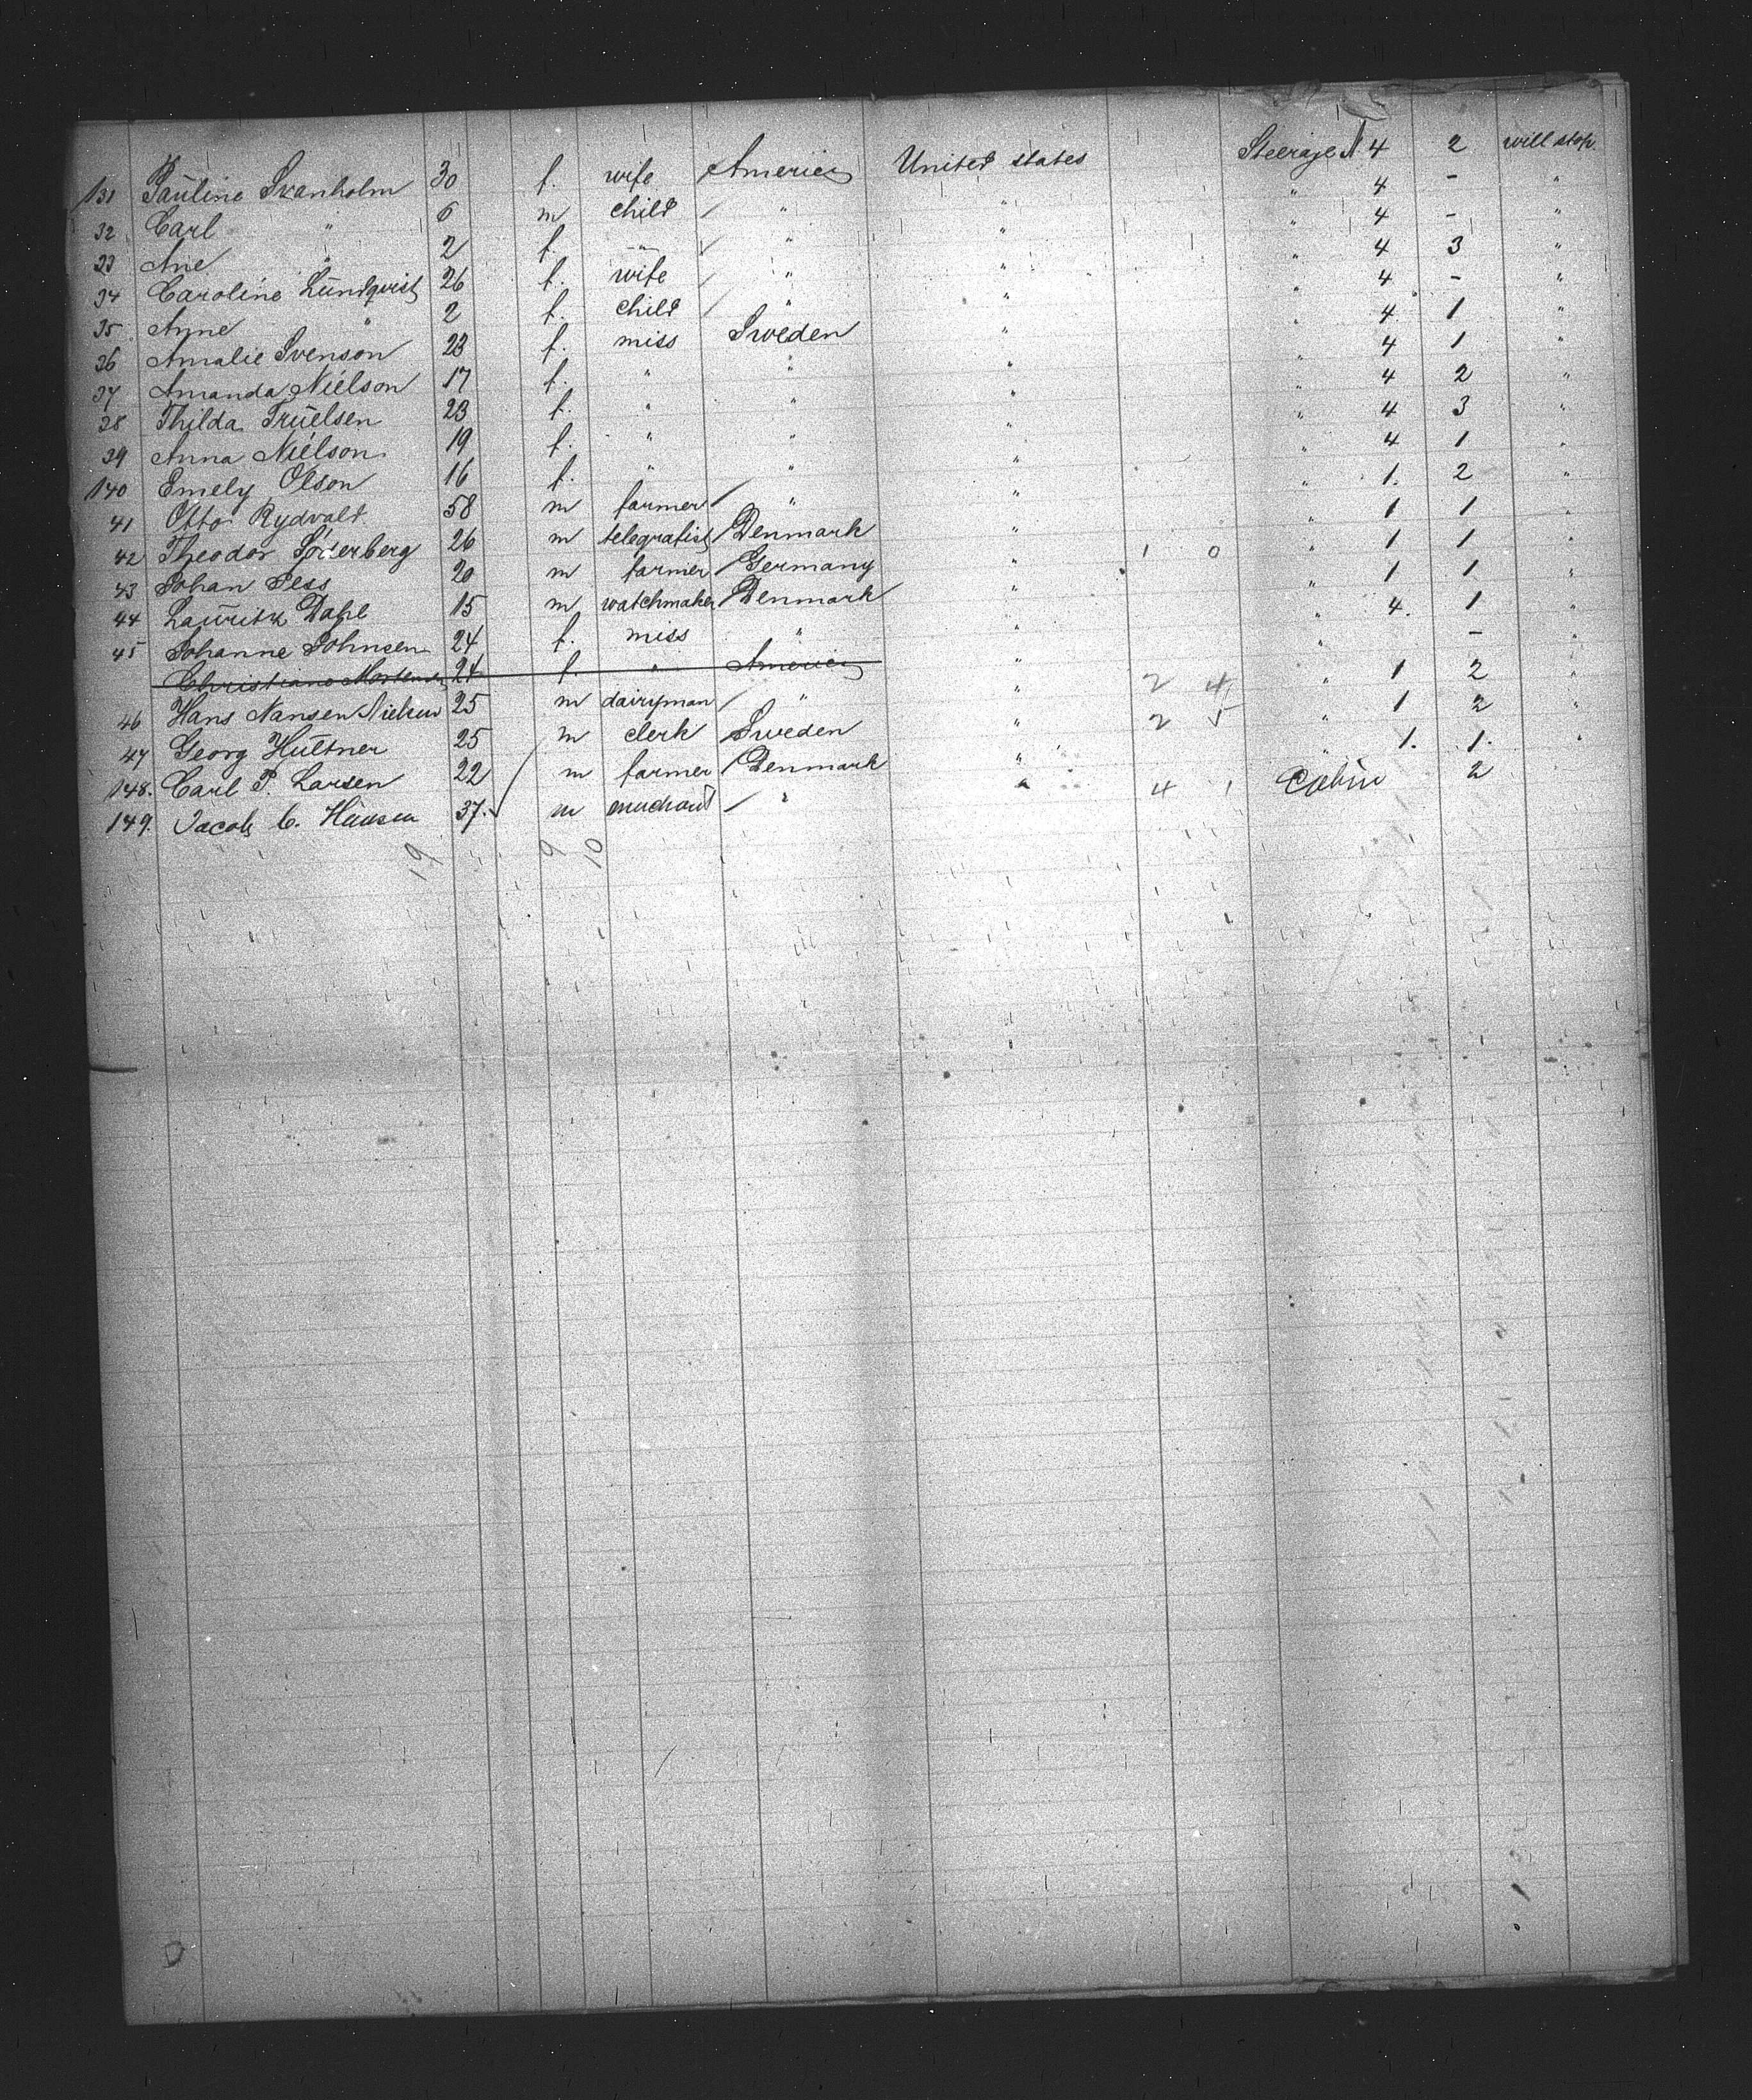 131 Pauline Svanholm 30 f. wife America United states Steerage N 4 2 will stop
32 Carl " 6 m child / " " " 4 - "
33 Ane " 2 f. " / " " " 4 - "
34 Caroline Lundqvist 26 f. wife / " " " 4 3 "
35 Anne " 2 f. child / " " " 4 - "
36 Amalie Svenson 23 f. miss Sweden " " 4 1 "
37 Amanda Nielson 17 f. " " " " 4 1 "
38 Thilda Truelsen 23 f. " " " " 4 2 "
39 Anna Nielson 19 f. " " " " 4 3 "
140 Emely Olson 16 f. " " " " 4 1 "
41 Otto Rydvald 58 m farmer / " " " 1. 2 "
42 Theodor Søderberg 26 m telegrafist / Denmark " " 1 1 "
43 Johan Jess 20 m farmer / Germany " 1 0 " 1 1 "
44 Lauritz Dahl 15 m watchmaker / Denmark " " 1 1 "
45 Johanne Johnsen 24 f. miss " " " 4. 1 "
Christiane Mortensen 24 f. " America " " - "
46 Hans Nansen Nielsen 25 m dairyman / " " 2 4 " 1 2 "
47 Georg Hultner 25 m clerk / Sweden " 2 5 " 1 2 "
148. Carl P. Larsen 22 m farmer / Denmark " " 1. 1. "
149. Jacob C. Hansen 37. m merchant / " " 4 1 Cabin 2
19 9 10